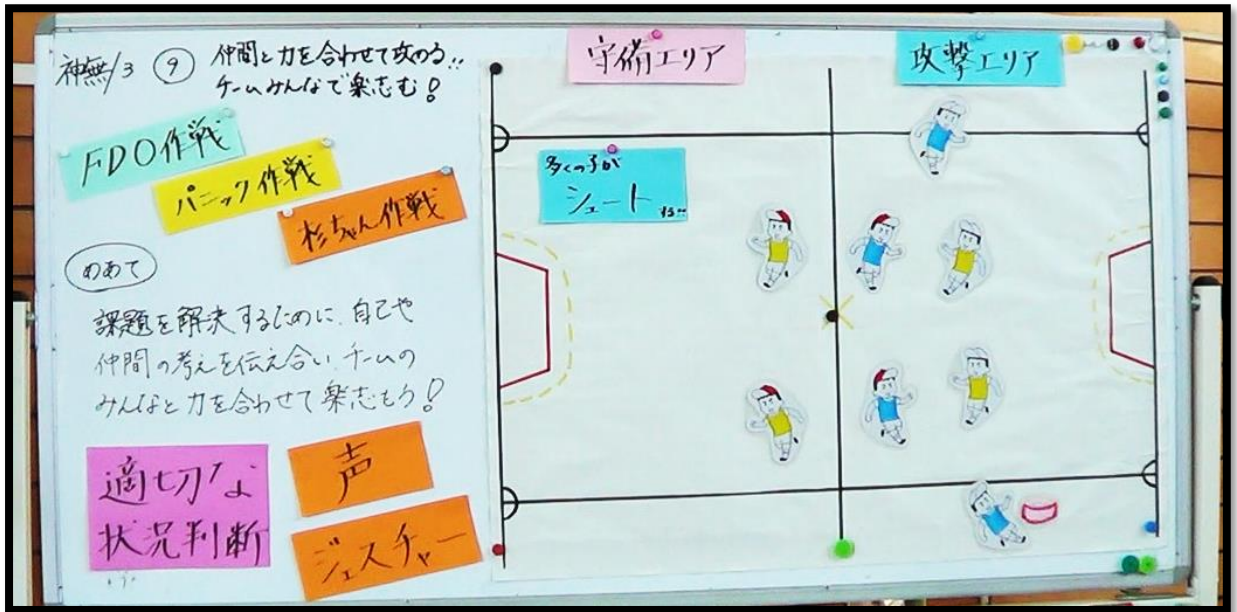 神無/3 ⑨ 仲間と力を合わせて攻める!!
チームみんなで楽志む!
FDO作戦
パニック作戦
杉ちゃん作戦
めあて
課題を解決するために、自己や
仲間の考えを伝え合い、チームの
みんなと力を合わせて楽志もう!
適切な
状況判断
声
ジェスチャー
守備エリア
攻撃エリア
多くの子が
シュート